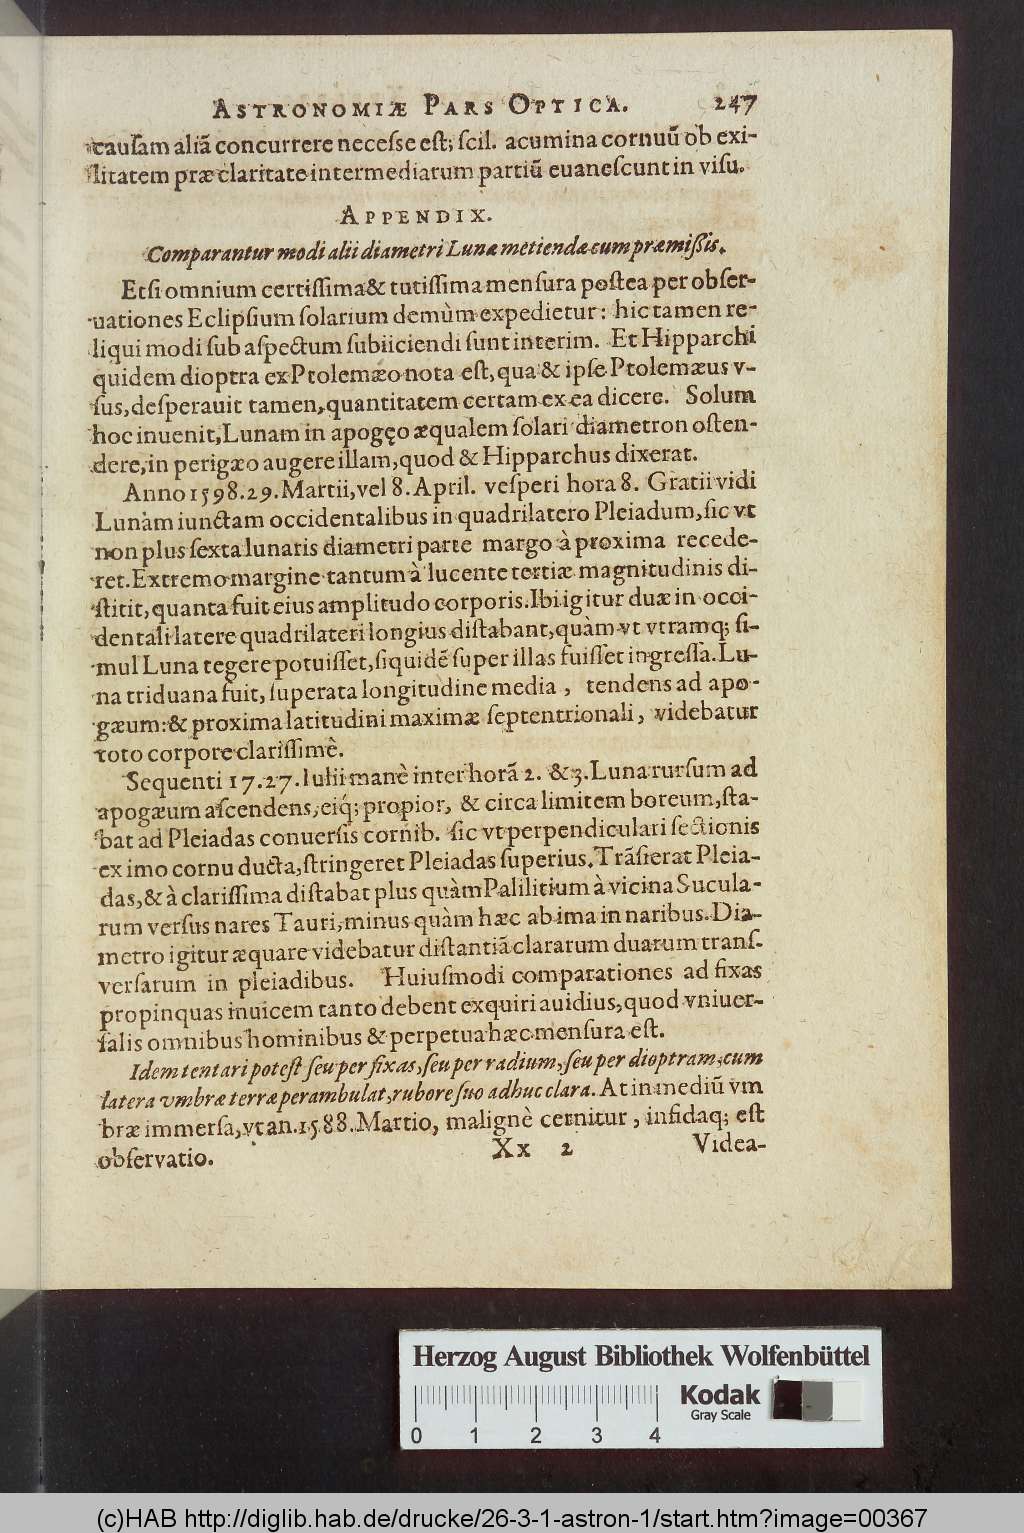 ASTRONOMIÆ PARS OPTICA. 247
causam aliā concurrere necesse est; scil. acumina cornuū ob exi-
litatem præ claritate intermediarum partiū euanescunt in visu.
APPENDIX.
Comparantur modi alii diametri Lunæ metiendæ cum præmißis.
Etsi omnium certissima & tutissima mensura postea per obser-
uationes Eclipsium solarium demùm expedietur: hic tamen re-
liqui modi sub aspectum subiiciendi sunt interim. Et Hipparchi
quidem dioptra ex Ptolemæo nota est, qua & ipse Ptolemæus v-
sus, desperauit tamen, quantitatem certam ex ea dicere. Solum
hoc inuenit, Lunam in apogęo æqualem solari diametron osten-
dere, in perigæo augere illam, quod & Hipparchus dixerat.
Anno 1598. 29. Martii, vel 8. April. vesperi hora 8. Gratii vidi
Lunàm iunctam occidentalibus in quadrilatero Pleiadum, sic vt
non plus sexta lunaris diametri parte margo à proxima recede-
ret. Extremo margine tantum à lucente tertiæ magnitudinis di-
stitit, quanta fuit eius amplitudo corporis. Ibi igitur duæ in occi-
dentali latere quadrilateri longius distabant, quàm vt vtramq; si-
mul Luna tegere potuisset, siquidē super illas fuisset ingressa. Lu-
na triduana fuit, superata longitudine media, tendens ad apo-
gæum: & proxima latitudini maximæ septentrionali, videbatur
toto corpore clarissimè.
Sequenti 17. 27. Iulii manè inter horā 2. & 3. Luna rursum ad
apogæum ascendens, eiq́; propior, & circa limitem boreum, sta-
bat ad Pleiadas conuersis cornib. sic vt perpendiculari sectionis
ex imo cornu ducta, stringeret Pleiadas superius. Trāsierat Pleia-
das, & à clarissima distabat plus quàm Palilitium à vicina Sucula-
rum versus nares Tauri, minus quàm hæc ab ima in naribus. Dia-
metro igitur æquare videbatur distantiā clararum duarum trans-
versarum in pleiadibus. Huiusmodi comparationes ad fixas
propinquas inuicem tanto debent exquiri auidius, quod vniuer-
salis omnibus hominibus & perpetua hæc mensura est.
Idem tentari potest seu per fixas, seu per radium, seu per dioptram, cum
latera vmbræ terræ perambulat, rubore suo adhuc clara. At in mediū vm
bræ immersa, vt an. 1588. Martio, malignè cernitur, infidaq; est
observatio. Xx 2 Videa-
Herzog August Bibliothek Wolfenbüttel
Kodak
Gray Scale
0 1 2 3 4
(c)HAB http://diglib.hab.de/drucke/26-3-1-astron-1/start.htm?image=00367